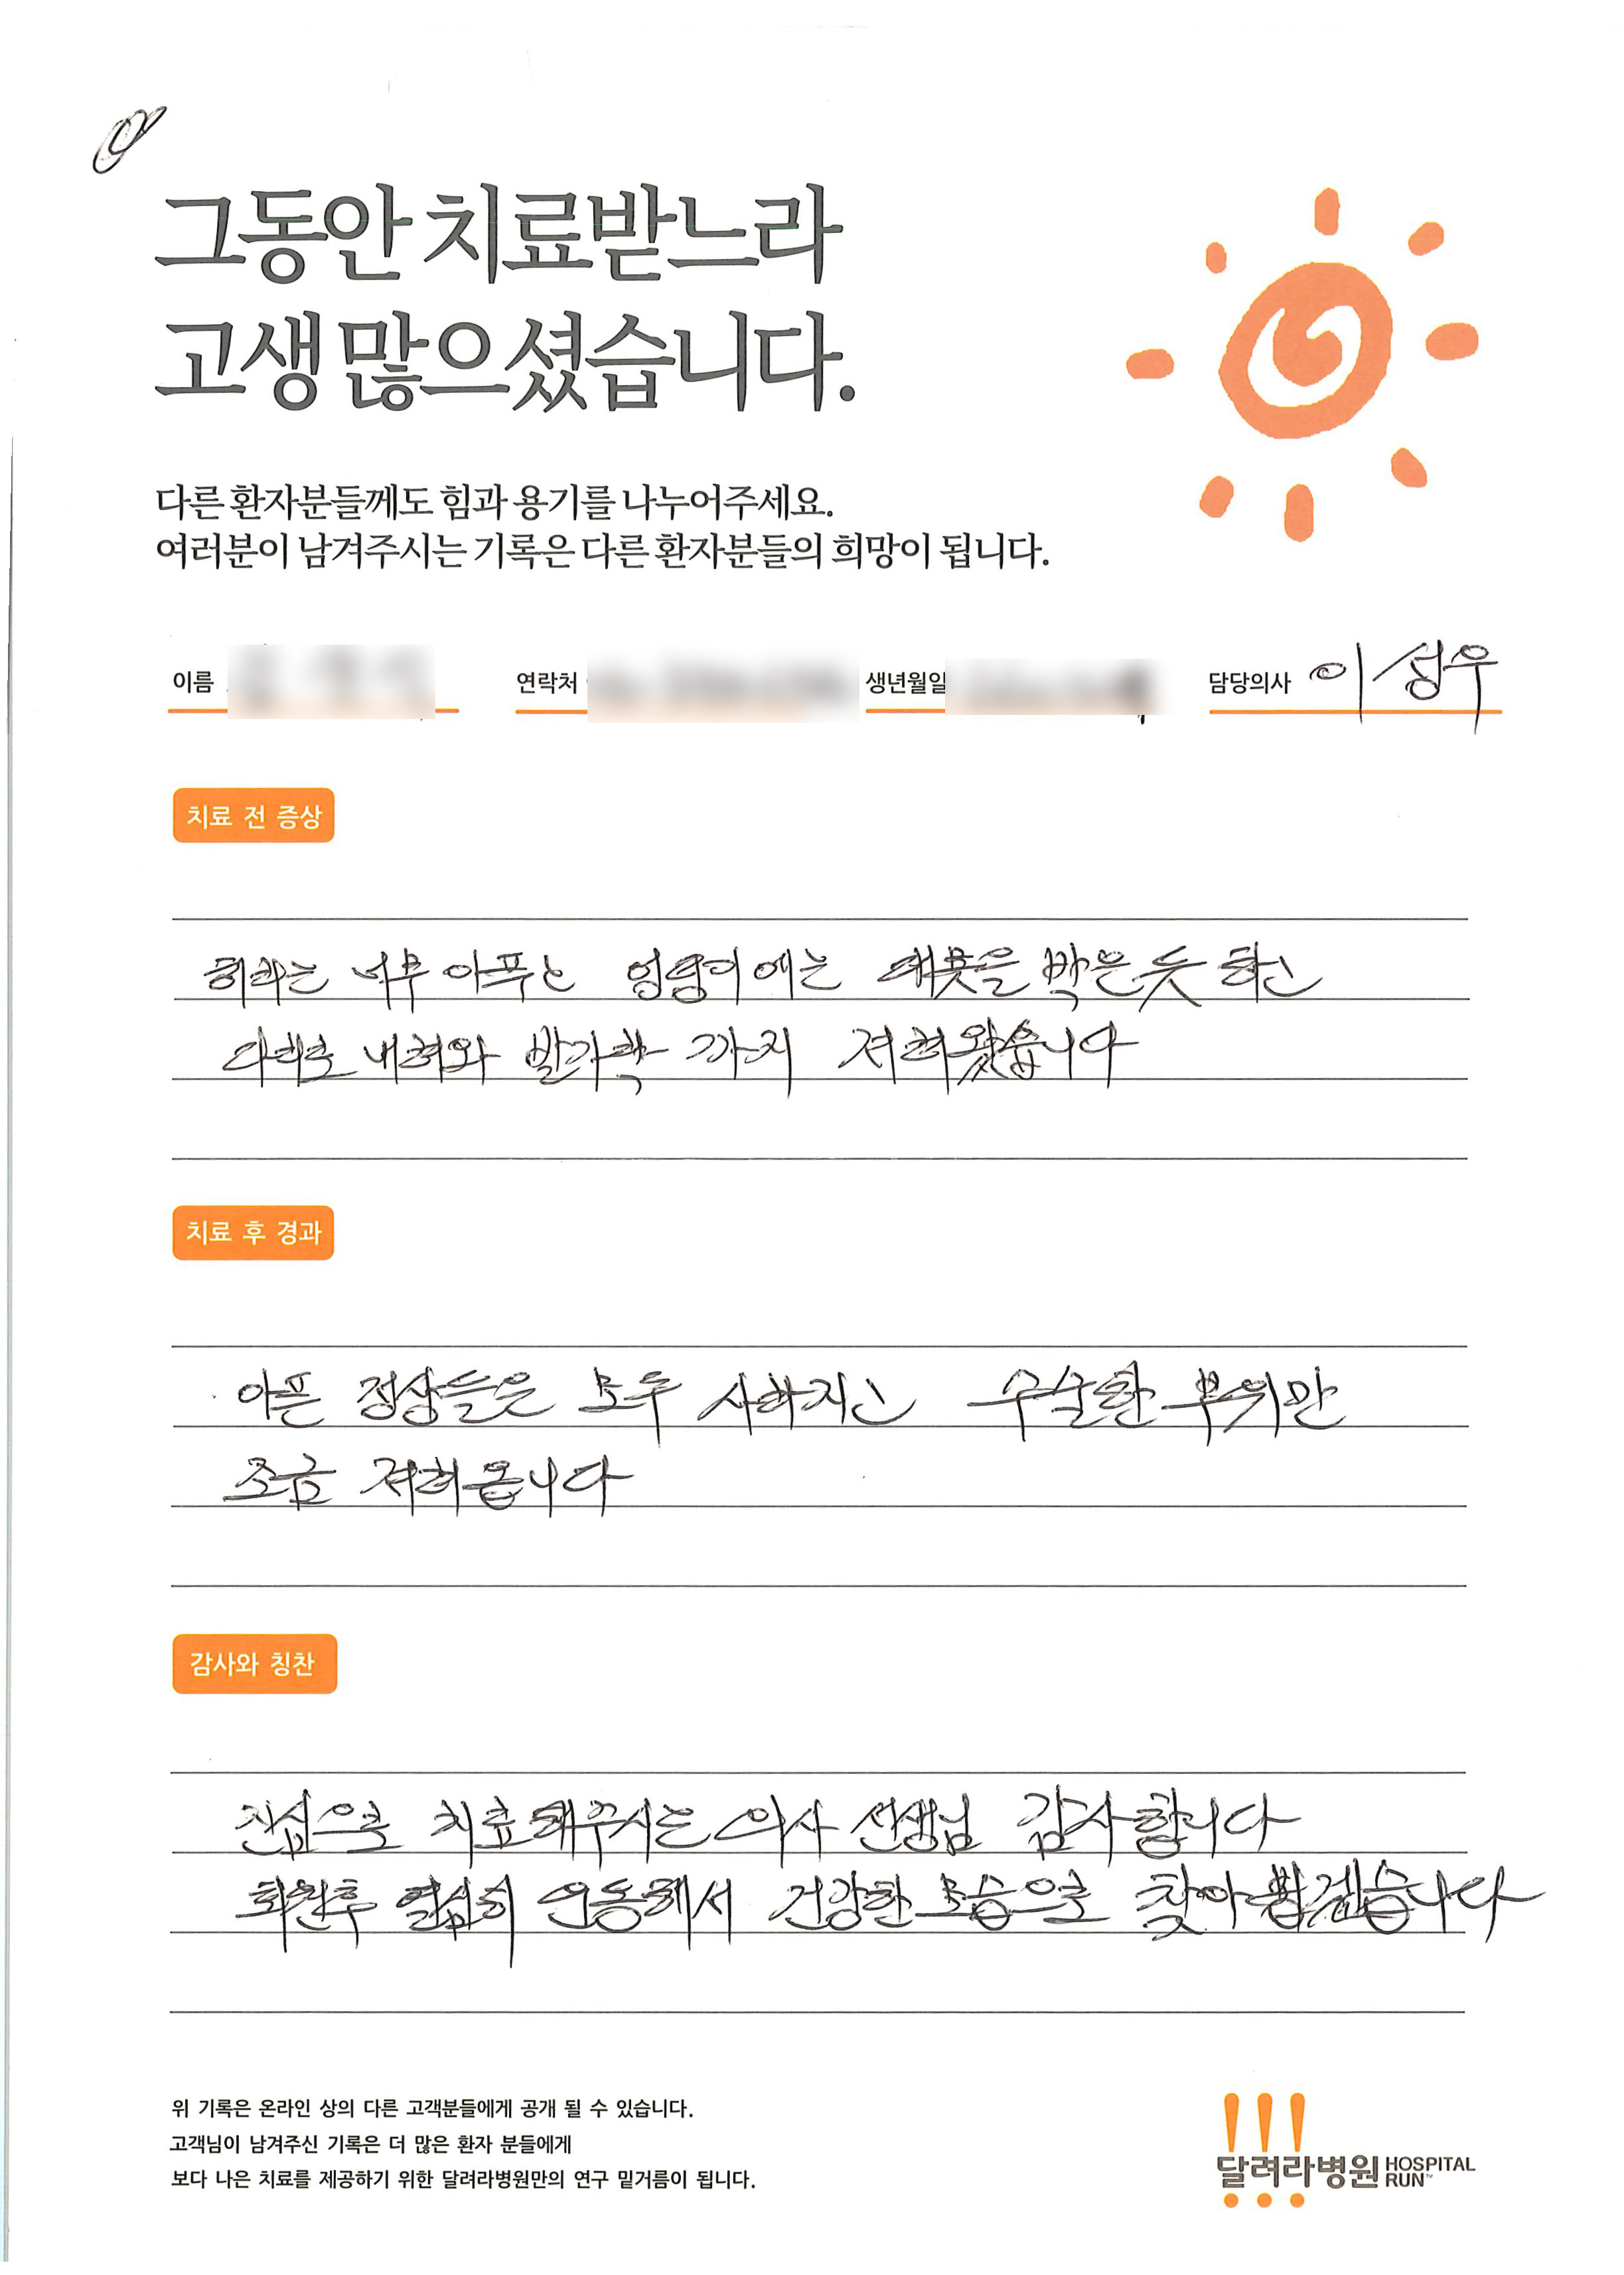 그동안 치료받느라
고생 많으셨습니다.
다른 환자분들께도 힘과 용기를 나누어주세요.
여러분이 남겨주시는 기록은 다른 환자분들의 희망이 됩니다.
이름 연락처 생년월일 담당의사 이성우
치료 전 증상
허리는 너무 아푸고 엉덩이에는 대못을 박은듯 하고
다리로 내려와 발가락 까지 저려왔습니다
치료 후 경과
아픈 정상들은 모두 사라지고 수술한 부위만
조금 저려옵니다
감사와 칭찬
진심으로 치료해주시는 의사 선생님 감사합니다
퇴원후 열심히 운동해서 건강한 모습으로 찾아뵙겠습니다
위 기록은 온라인 상의 다른 고객분들에게 공개 될 수 있습니다.
고객님이 남겨주신 기록은 더 많은 환자 분들에게
보다 나은 치료를 제공하기 위한 달려라병원만의 연구 밑거름이 됩니다.
달려라병원 HOSPITAL RUN™